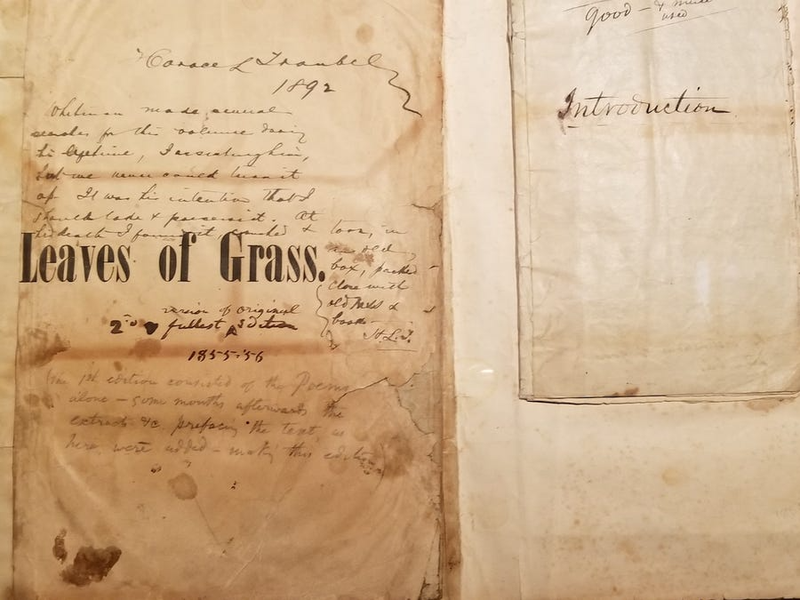 Horace L Traubel
1892
Whitman made several
searches for this volume during
his lifetime, I assisting him,
but we never could trace it
up. It was his intention that I
should take & possess it. At
his death I found it crushed & torn, in
an old
box, packed
close with
old mss &
books
H.L.T.
Leaves of Grass.
2nd version of original
fullest Edition
1855-'56
1st edition consisted of the Poems
alone – some months afterwards the
extracts &c. prefacing the text, as
here, were added – making this edition)
Good – &
used
Introduction